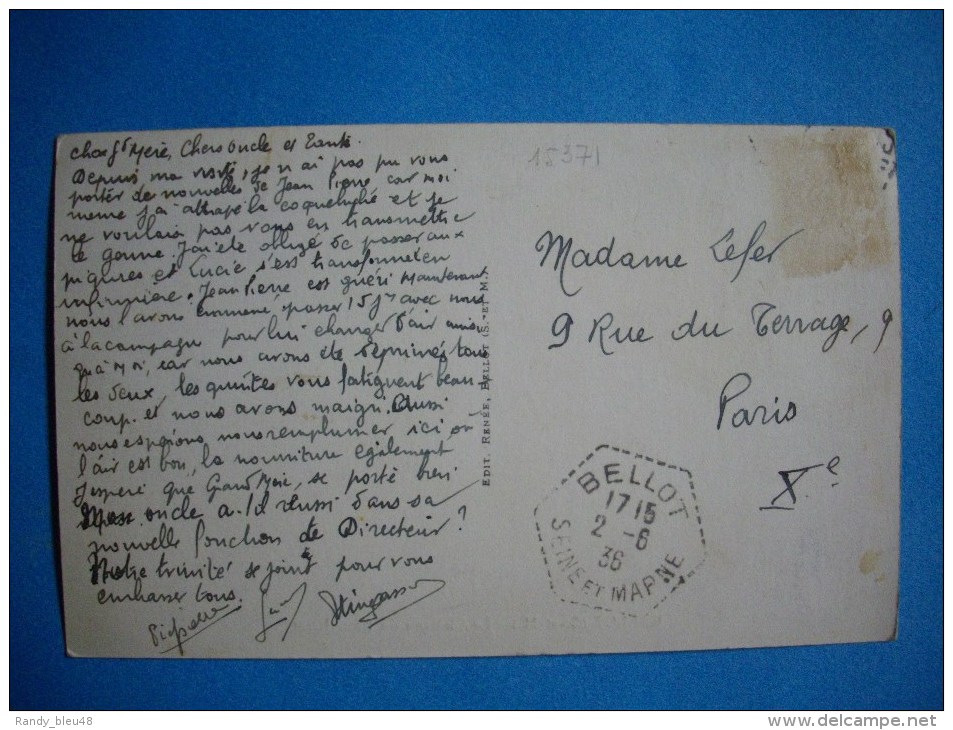 Chère Gd Mère, Chers Oncle et Tante.
Depuis ma visite, je n'ai pas pu vous
porter de nouvelles de Jean Pierre car moi
meme j'ai attrapé la coqueluche et je
ne voulais pas vous en transmettre
le germe. J'ai été obligé de passer aux
piqures et Lucie s'est transformé en
infirmière. Jean Pierre est guéri maintenant
nous l'avons emmené passer 15 jrs avec nous
à la campagne pour lui changer d'air ainsi
qu'à moi, car nous avons été déprimés tous
les deux, les quintes vous fatiguent beau-
coup. et nous avons maigri. Aussi
nous espérons, nous remplumer ici, où
l'air est bon, la nourriture également
J'espère que Grand Mère, se porte bien
Mon oncle a-t-il réussi dans sa
nouvelle fonction de Directeur?
Notre trinité se joint pour vous
embrasser tous.
EDIT. RENÉE, BELLOT (S.-ET-M.)
15371
Madame Lefer
9 Rue du Terrage, 9
Paris
Xe
BELLOT
17 15
2-6
36
SEINE ET MARNE
Randy_bleu48
delcampe.net